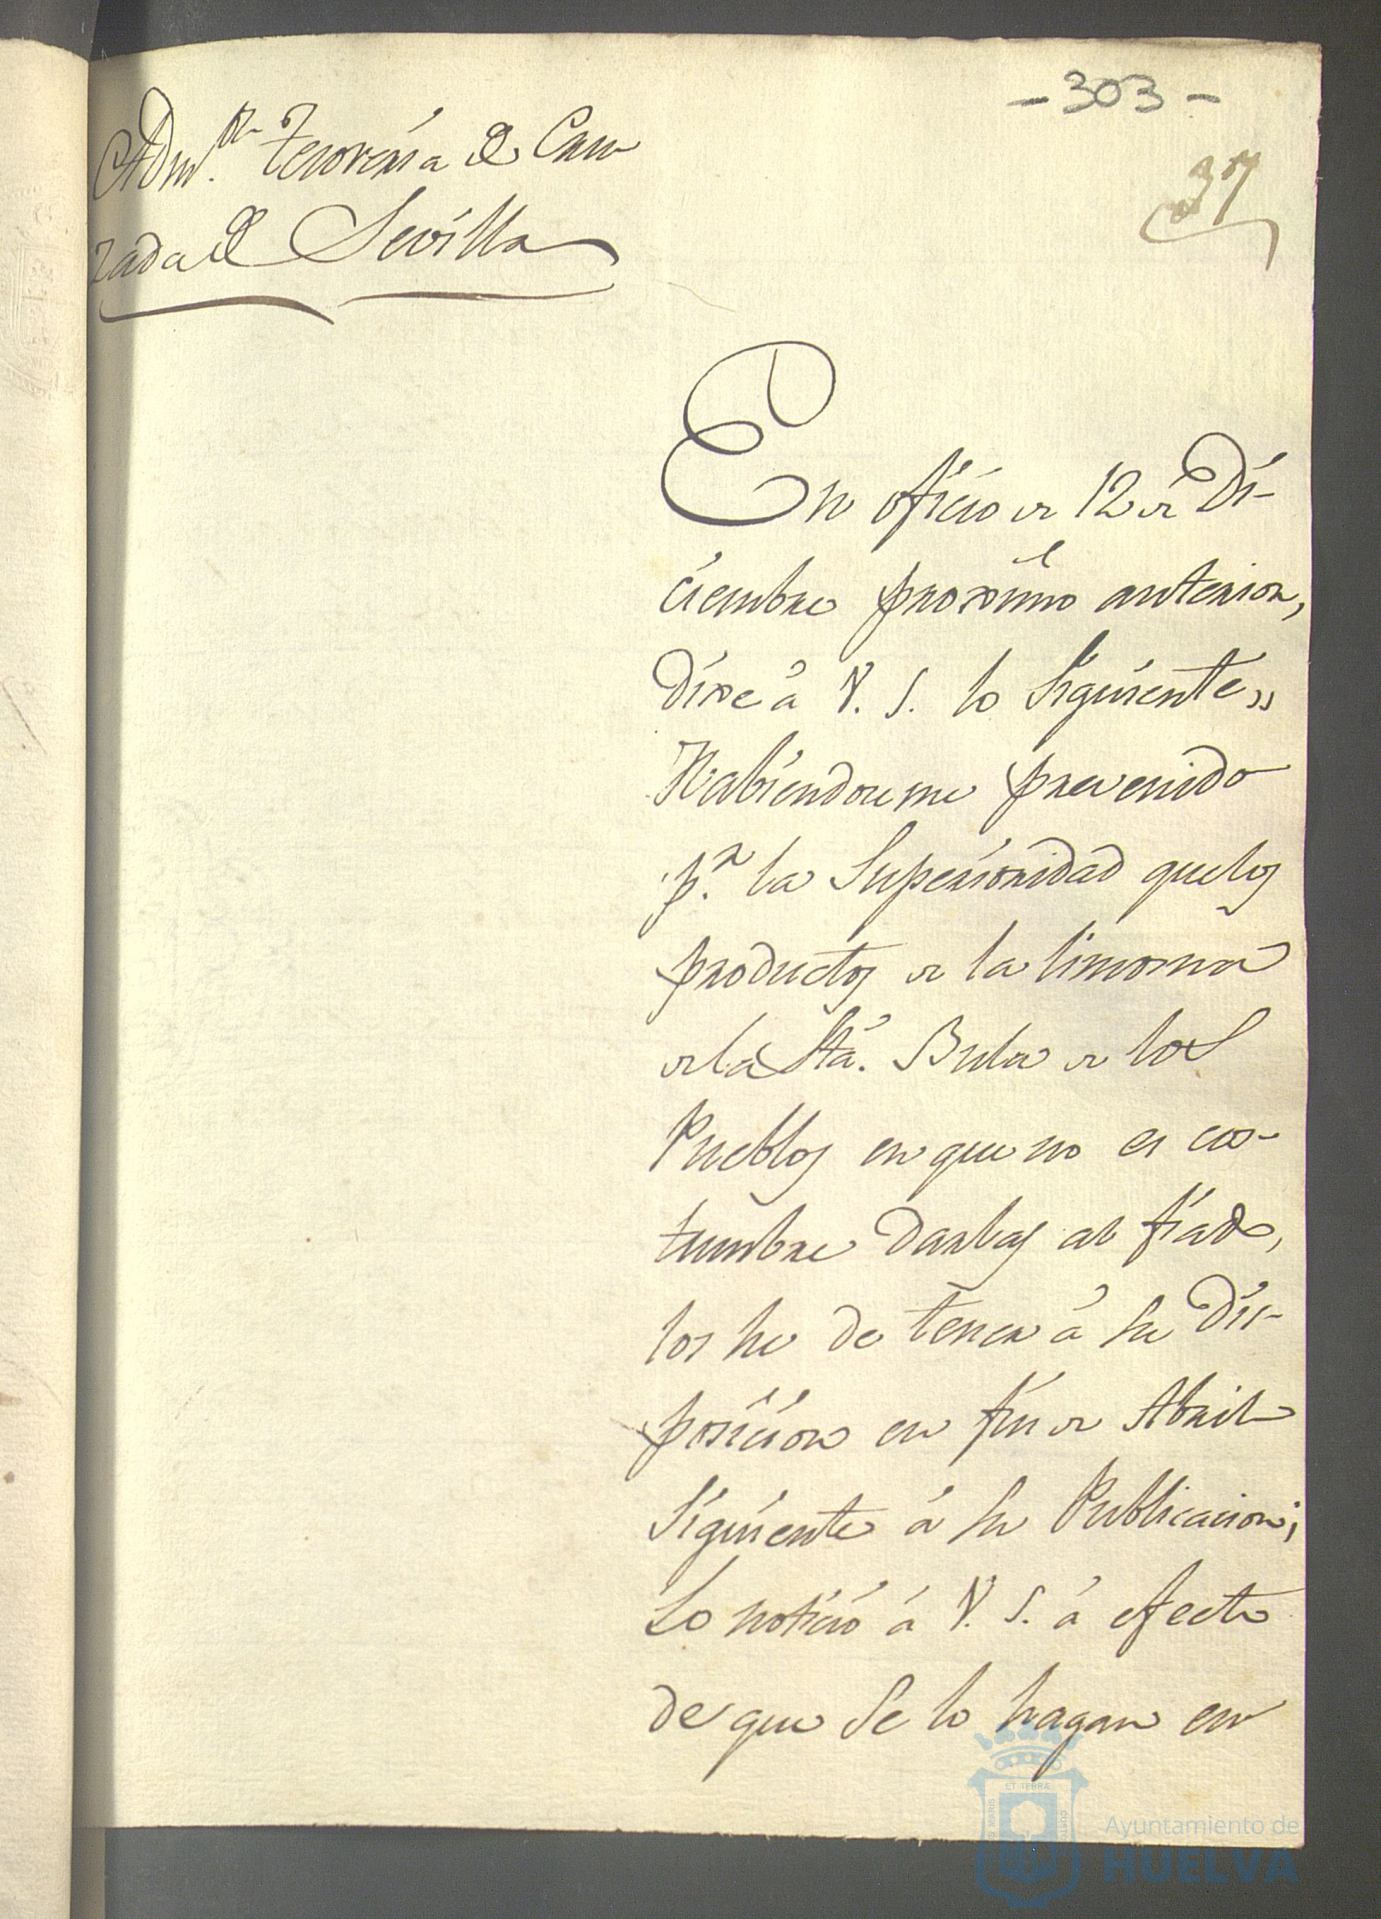 - 303 -
37
Adm.on Tesoreria de Cru
zada de Sevilla
En oficio de 12 de Di-
ciembre proximo anterior,
dixe á V. S. lo siguiente„
Habiendoseme prevenido
p.r la Superioridad que los
productos de la limosna
de la Sta. Bula de los
Pueblos en que no es cos-
tumbre darlas al fiado,
los he de tener á su dis-
posicion en fin de Abril
siguiente á su Publicacion;
Lo noticio á V. S. á efecto
de que se lo hagan en
Ayuntamiento de
HUELVA